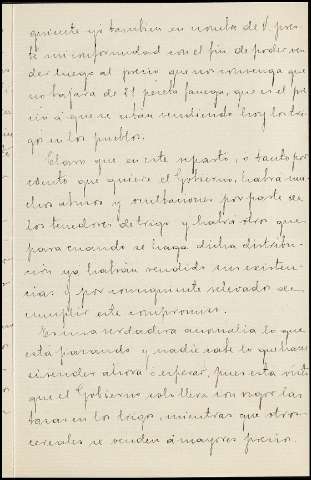 quiente yo tambien en nombre de V. pres-
té mi conformidad con el fin de poder ven-
der luego al precio que nos convenga que
no bajara de 21 peseta fanega, que es el pre-
cio á que se estan vendiendo hoy los tri-
gos en los pueblos.
Claro que en este reparto, o tanto por
ciento que quiere el Gobierno, habra mu-
chos abusos y ocultaciones por parte de
los tenedores de trigo y habrá otros que
para cuando se haga dicha distribu-
ción ya habrán vendido sus existen-
cias y por consiguiente relevados de
cumplir este compromiso.
Es una verdadera anomalia lo que
esta pasando y nadie sabe lo que hacer
si vender ahora o esperar, pues esta visto
que el Gobierno solo lleva con rigor las
tasas en los trigos, mientras que otros
cereales se venden á mayores precios.